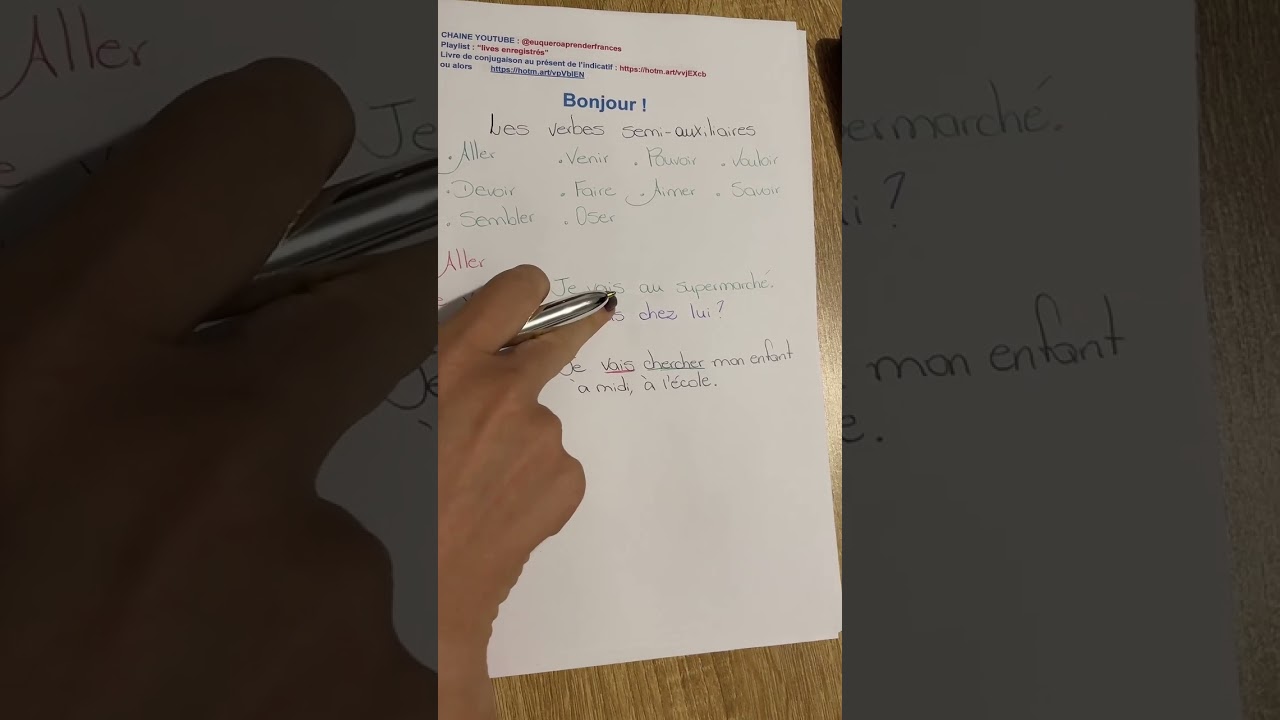 CHAINE YOUTUBE : @euqueroaprenderfrances
Playlist : "lives enregistrés"
Livre de conjugaison au présent de l'indicatif : https://hotm.art/vvjEXcb
ou alors https://hotm.art/vpVblEN
Bonjour !
Les verbes semi-auxiliaires
. Aller . Venir . Pouvoir . Vouloir
. Devoir . Faire . Aimer . Savoir
. Sembler . Oser
Aller
Je vais au supermarché.
chez lui ?
Je vais chercher mon enfant
à midi, à l'école.